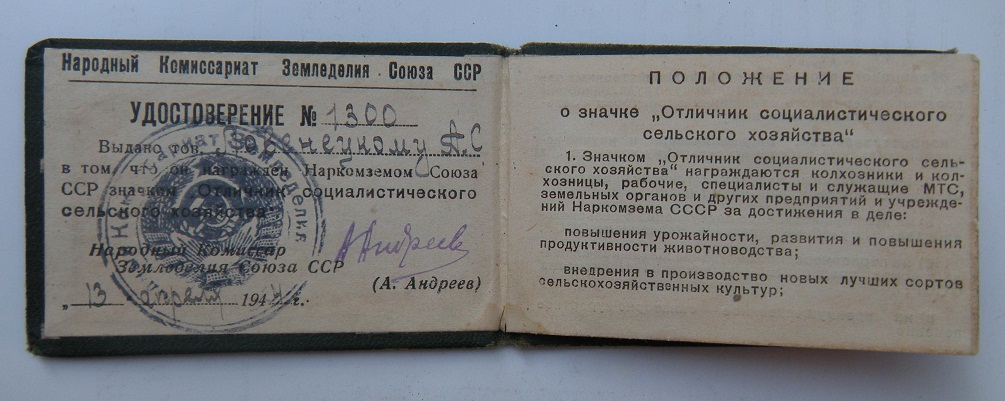 Народный Комиссариат Земледелия Союза ССР
УДОСТОВЕРЕНИЕ № 1300
Выдано тов. А.С
в том, что он награжден Наркомземом Союза
ССР значком „Отличник социалистического
сельского хозяйства“
Народный Комиссар
Земледелия Союза ССР
(А. Андреев)
„13 апреля 194 г.
ПОЛОЖЕНИЕ
о значке „Отличник социалистического
сельского хозяйства“
1. Значком „Отличник социалистического сель-
ского хозяйства“ награждаются колхозники и кол-
хозницы, рабочие, специалисты и служащие МТС,
земельных органов и других предприятий и учрежде-
ний Наркомзема СССР за достижения в деле:
повышения урожайности, развития и повышения
продуктивности животноводства;
внедрения в производство новых лучших сортов
сельскохозяйственных культур;